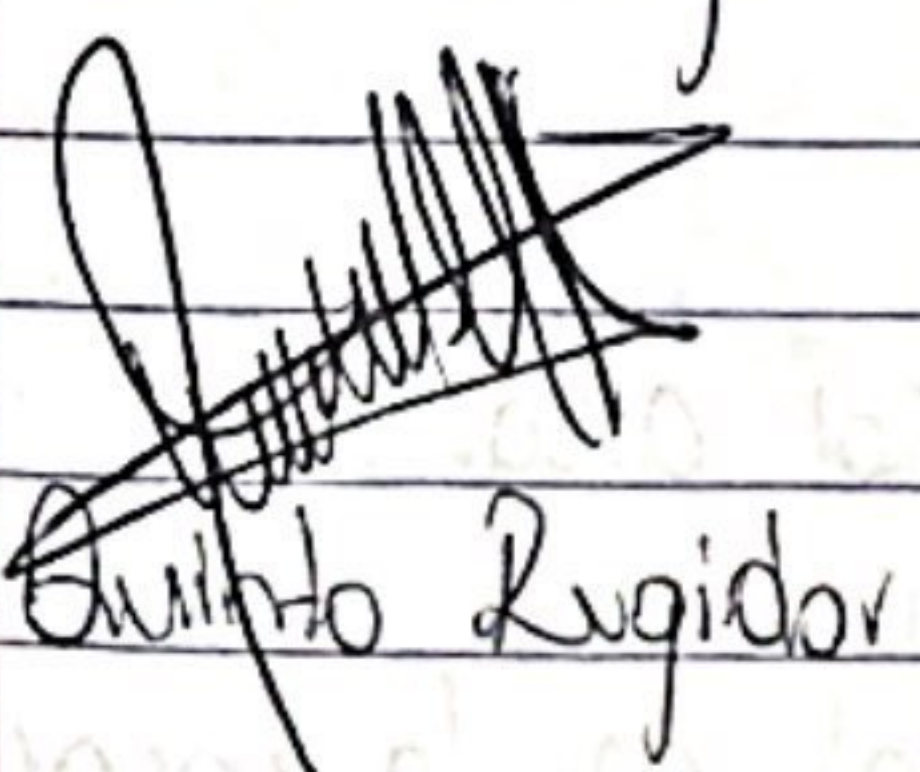 Quinto Rugidor